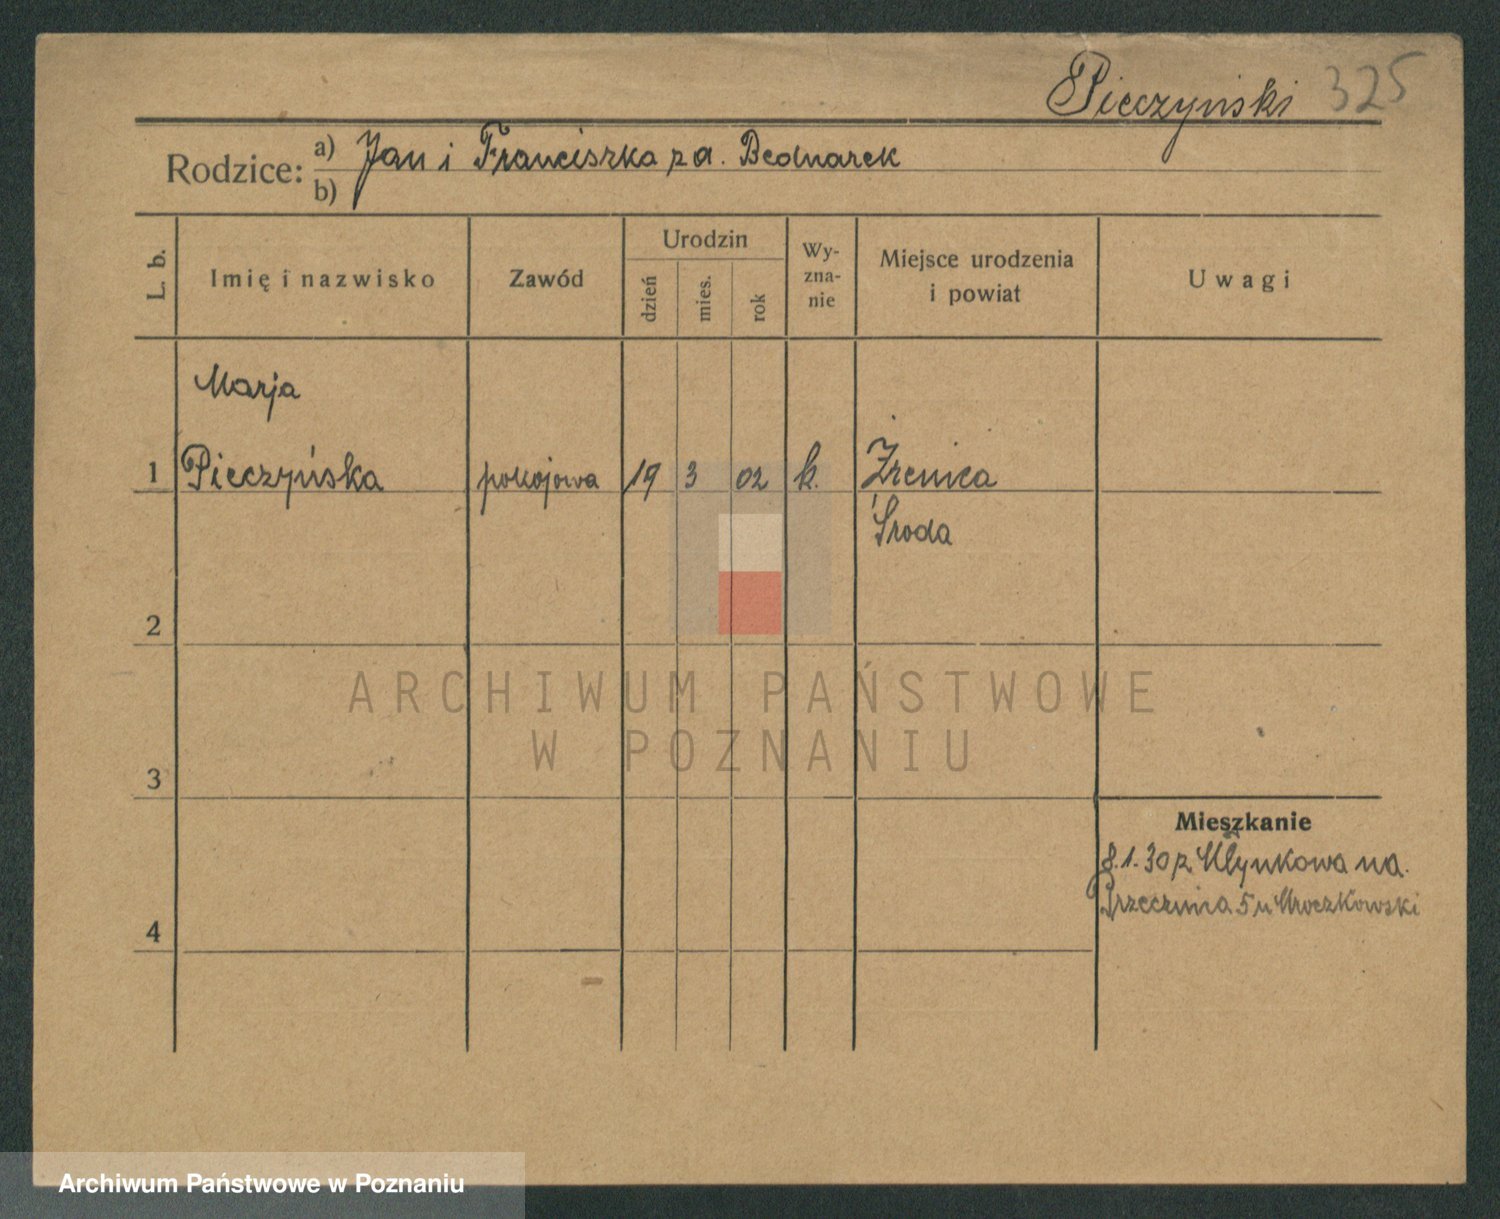 Pieczyński 325
Rodzice: a) Jan i Franciszka z d. Bednarek
b)
L. b. Imię i nazwisko Zawód Urodzin dzień mies. rok Wy-zna-nie Miejsce urodzenia i powiat Uwagi
Marja
1 Pieczyńska pokojowa 19 3 02 k. Źrenica
Środa
2
ARCHIWUM PAŃSTWOWE
W POZNANIU
3
Mieszkanie
8.1.30 z Młynkowa na.
Strzecznica 5 u Mroczkowski
4
Archiwum Państwowe w Poznaniu